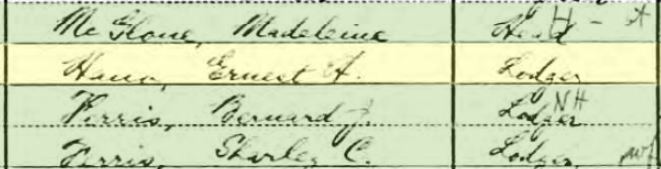 McGlone, Madeleine Head H - A
Hano, Ernest A. Lodger
Ferris, Bernard J. Lodger NH
Ferris, Sharley C. Lodger